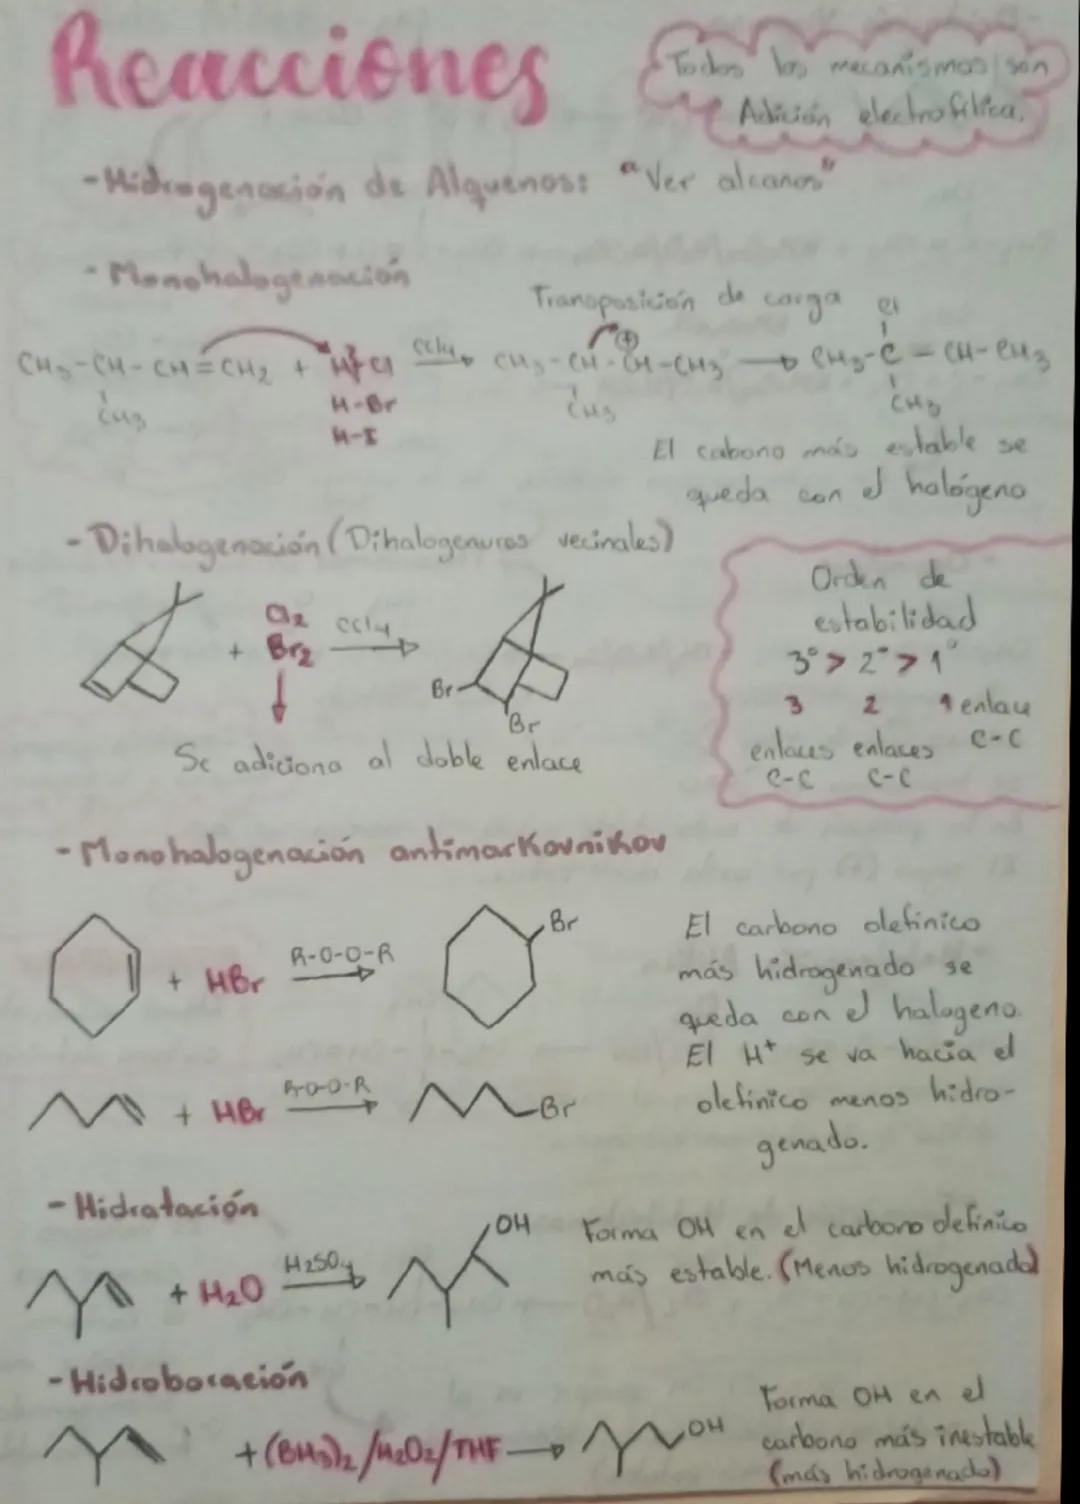 Reacciones
Todos los mecanismos son
Adición electrofílica.
-Hidrogenación de Alquenos: "Ver alcanos"
- Monohalogenación
Transposición de carga
CH3-CH-CH=CH2 + H-Cl CCl4 CH3-CH-CH-CH3 Cl
CH3-C-CH-CH3
CH3 H-Br CH3 CH3
H-I
El cabono más estable se
queda con el halógeno
- Dihalogenación (Dihalogenuros vecinales)
Cl2
+ Br2 CCl4
Br
Br
Se adiciona al doble enlace
Orden de
estabilidad
3° > 2° > 1°
3 2 1 enlace
enlaces enlaces C-C
C-C C-C
- Monohalogenación antimarkovnikov
+ HBr R-O-O-R Br
El carbono olefinico
más hidrogenado se
queda con el halogeno.
El H+ se va hacia el
olefinico menos hidro-
genado.
+ HBr R-O-O-R Br
- Hidratación
+ H2O H2SO4 OH
Forma OH en el carbono olefinico
más estable. (Menos hidrogenado)
- Hidroboración
+ (BH3)2/H2O2/THF OH
Forma OH en el
carbono más inestable
(más hidrogenado)